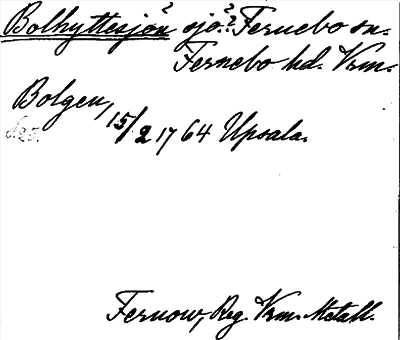 Bolhyttesjön? sjö?: Fernebo sn.
Fernebo hd. Vrm.
Bolgen,
15/2 1764 Upsala.
Fernow, Reg. Vrm. Metall.